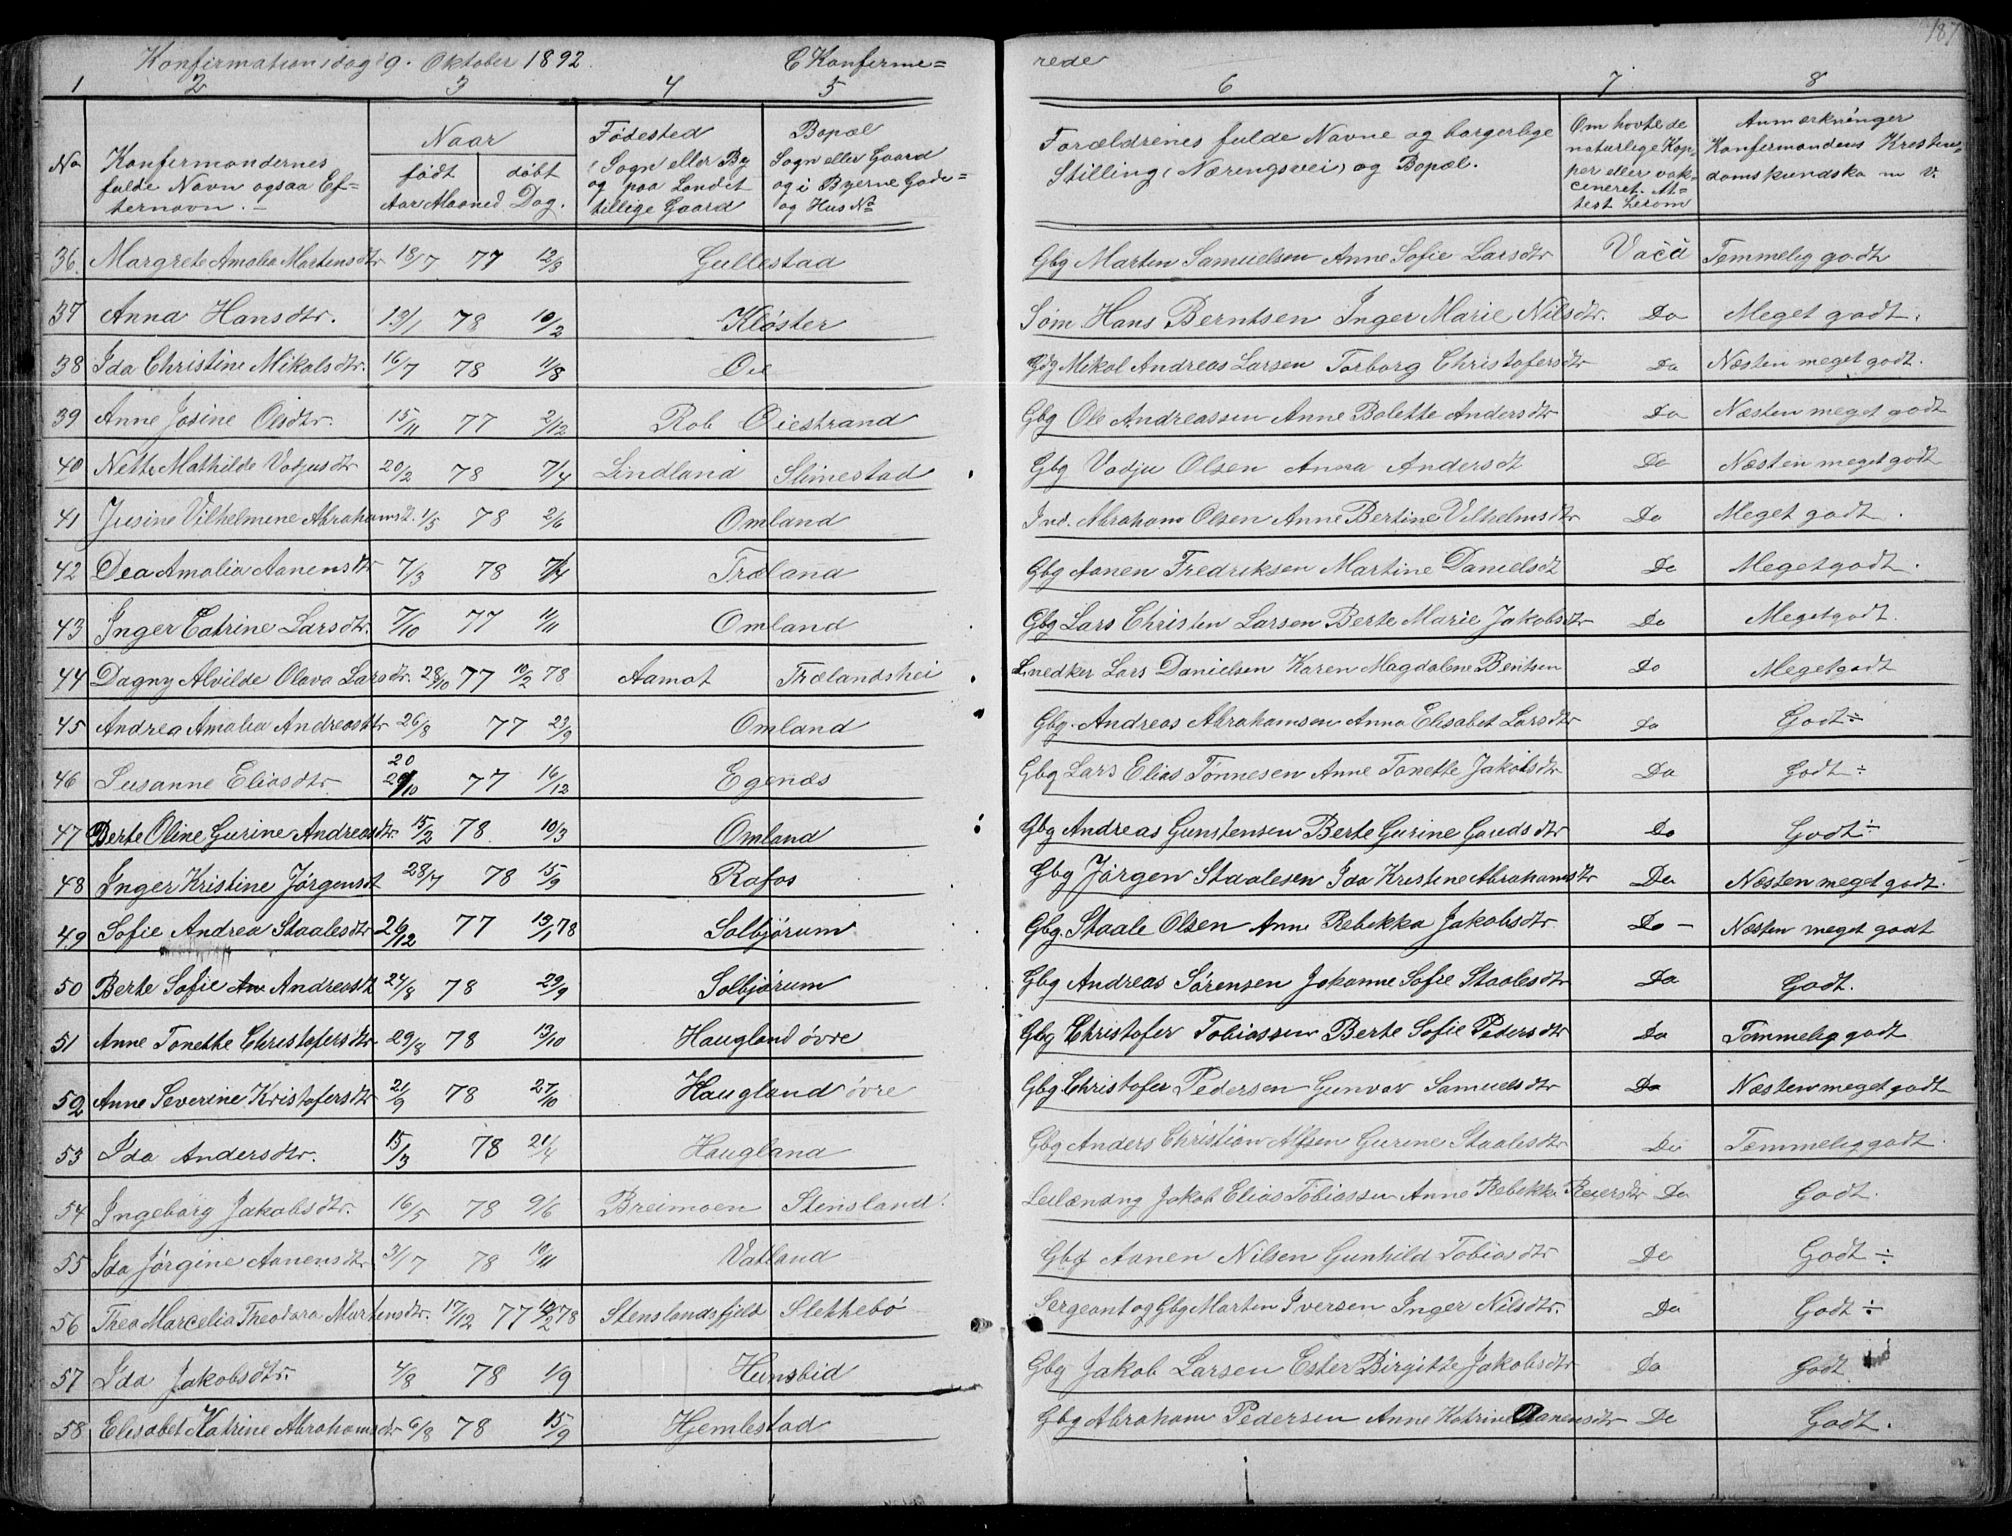 187
Konfirmationsdag 9. Oktober 1892. C Konferme=
rede
1 2 3 4 5 6 7 8
No Konfirmandernes fulde Navn ogsaa Ef= ternavn. – Naar født døbt Aar Maaned Dag. Fødested (Sogn eller By og paa Landet tillige Gaard Bopæl Sogn eller Gaard og i Byerne Gade= og Hus No Forældrenes fulde Navne og borgerlige Stilling (Næringsvei) og Bopæl. Om havte de naturlige Kop= per eller vak= cineret. At= test herom Anmærkninger Konfirmandens Kristen= domskundska m. v.
36. Margrete Amalia Martensdtr 18/7 77 12/8 Gullestad Gbg Marten Samuelsen Anne Sofie Larsdtr Vacc Temmelig godt
37 Anna Hansdtr. 13/1 78 10/2 Kløster Søm Hans Berntsen Inger Marie Nilsdtr. Do Meget godt.
38 Ida Christine Mikalsdtr. 16/7 78 11/8 Øie Gbg Mikal Andreas Larsen Torborg Christofersdtr Do Næsten meget godt.
39 Anne Josine Olsdtr. 15/11 77 2/12 Rob Øiestrand Gbg Ole Andreassen Anne Bolette Andersdtr Do Næsten meget godt
40 Nette Mathilde Vadjusdtr 20/2 78 7/4 Lindland Slimestad Gbg Vadju Olsen Anna Andersdt Do Næsten meget godt
41 Jusine Vilhelmene Abrahamsdt. 1/5 78 2/6 Omland Ind. Abraham Olsen Anne Bertine Vilhelmsdtr Do Meget godt.
42 Dea Amalia Aanensdtr 7/3 78 7/4 Træland Gbg Aanen Fredriksen Martine Danielsdt Do Meget godt.
43 Inger Catrine Larsdtr. 7/10 77 11/11 Omland Gbg Lars Christen Larsen Berte Marie Jakobsdtr Do Meget godt.
44 Dagny Alvilde Olava Larsdtr. 28/10 77 10/2 78 Aamot Trælandshei Snedker Lars Danielsen Karen Magdalene Bentsen Do Meget godt
45 Andrea Amalia Andreasdtr 26/8 77 23/9 Omland Gbg. Andreas Abrahamsen Anna Elisabet Larsdtr Do Godt ÷
46 Susanne Eliasdtr. 20 /10 77 16/12 Egenæs Gbg Lars Elias Tønnesen Anne Tonette Jakobsdtr Do Godt ÷
47 Berte Oline Gurine Andreasdtr. 15/2 78. 10/3 Omland Gbg Andreas Gunstensen Berte Gurine Gaudsdtr Do Godt ÷
48 Inger Kristine Jørgensdt 28/7 78 15/9 Rafos Gbg Jørgen Staalesen Ida Kristine Abrahamsdtr Do Næsten meget godt.
49 Sofie Andrea Staalesdtr 26/12 77 13/1 78 Solbjørum Gbg. Staale Olsen Anne Rebekka Jakobsdtr. Do – Næsten meget godt
50 Berte Sofie An Andreasdt 24/8 78 29/9 Solbjørum Gbg Andreas Sørensen Johanne Sofie Staalesdtr Do Godt.
51 Anne Tonette Christofersdtr 29/8 78 13/10 Haugland øvre Gbg Christofer Tobiassen Berte Sofie Pedersdtr Do Temmelig godt
52 Anne Severine Kristofersdtr 21/9 78 27/10 Haugland øvre Gbg Christofer Pedersen Gunvar Samuelsdtr Do Næsten meget godt
53 Ida Andersdtr. 15/3 78 21/4 Haugland Gbg Anders Christian Alfsen Gurine Staalesdtr Do Temmelig godt.
54 Ingeborg Jakobsdtr. 16/5 78 9/6 Breimoen Stensland. Leilændng Jakob Elias Tobiassen Anne Rebekka Reiersdtr Do Godt.
55 Ida Jørgine Aanensdtr 31/7 78 10/11 Vatland Gbg Aanen Nilsen Gunhild Tobiasdtr Do Godt ÷
56 Thea Marcelia Theodora Martensdtr. 17/12 77 12/2 78 Stenslandsfjeld Slettebø Sergeant og Gbg Marten Iversen Inger Nilsdtr. Do Godt ÷
57 Ida Jakobsdtr. 4/8 78 1/9 Hunsbid Gbg Jakob Larsen Ester Birgitte Jakobsdtr Do Godt
58 Elisabet Katrine Abrahamsdr 6/8 78 15/9 Hjemlestad Gbg Abraham Pedersen Anne Katrine Aanensdtr Do Godt.